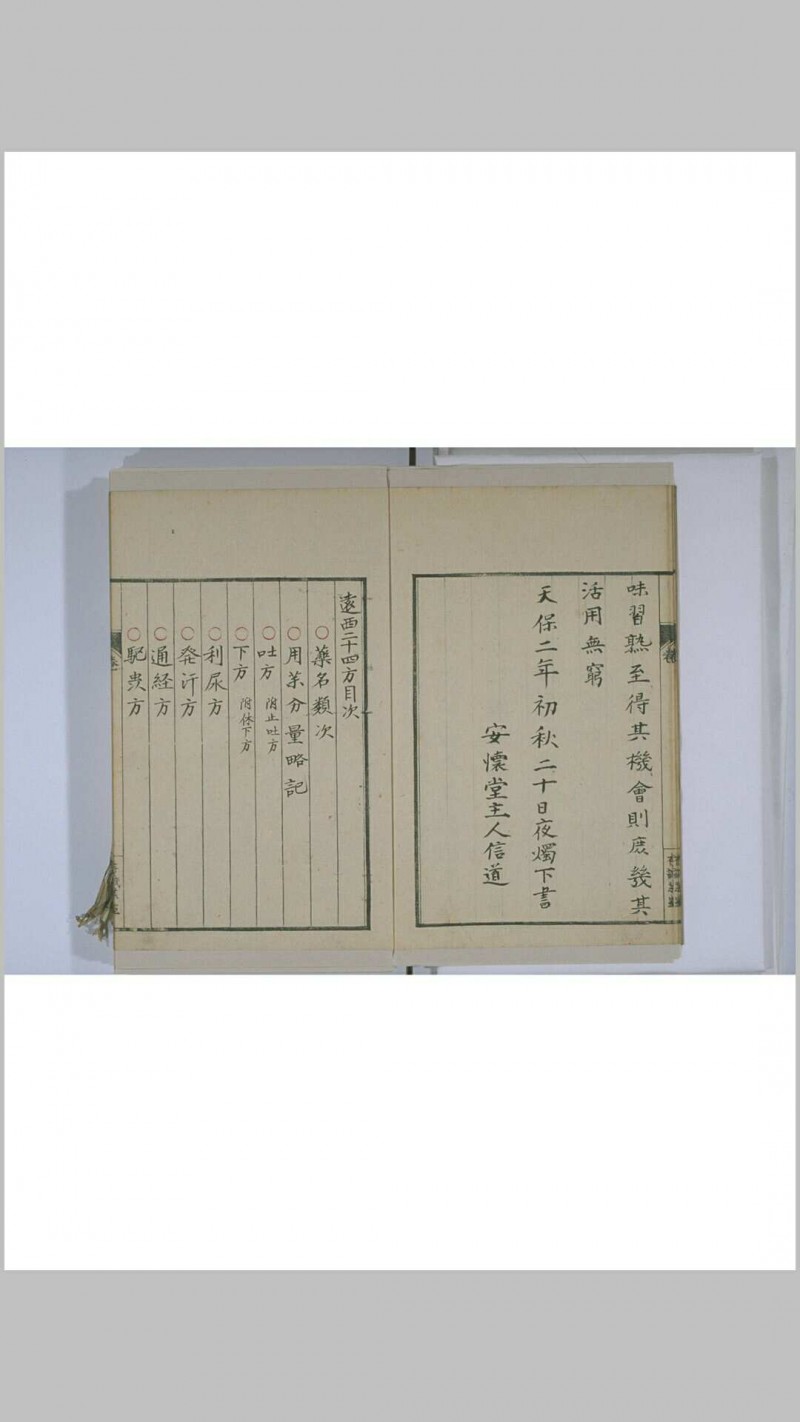 味習熟至得其機會則庶幾其
活用無窮
天保二年初秋二十日夜燭下書
安懷堂主人信道
遠西二十四方目次
○藥名類次
○用茶分量略記
○吐方 附止吐方
○下方 附休下方
○利尿方
○発汗方
○通経方
○駆炭方